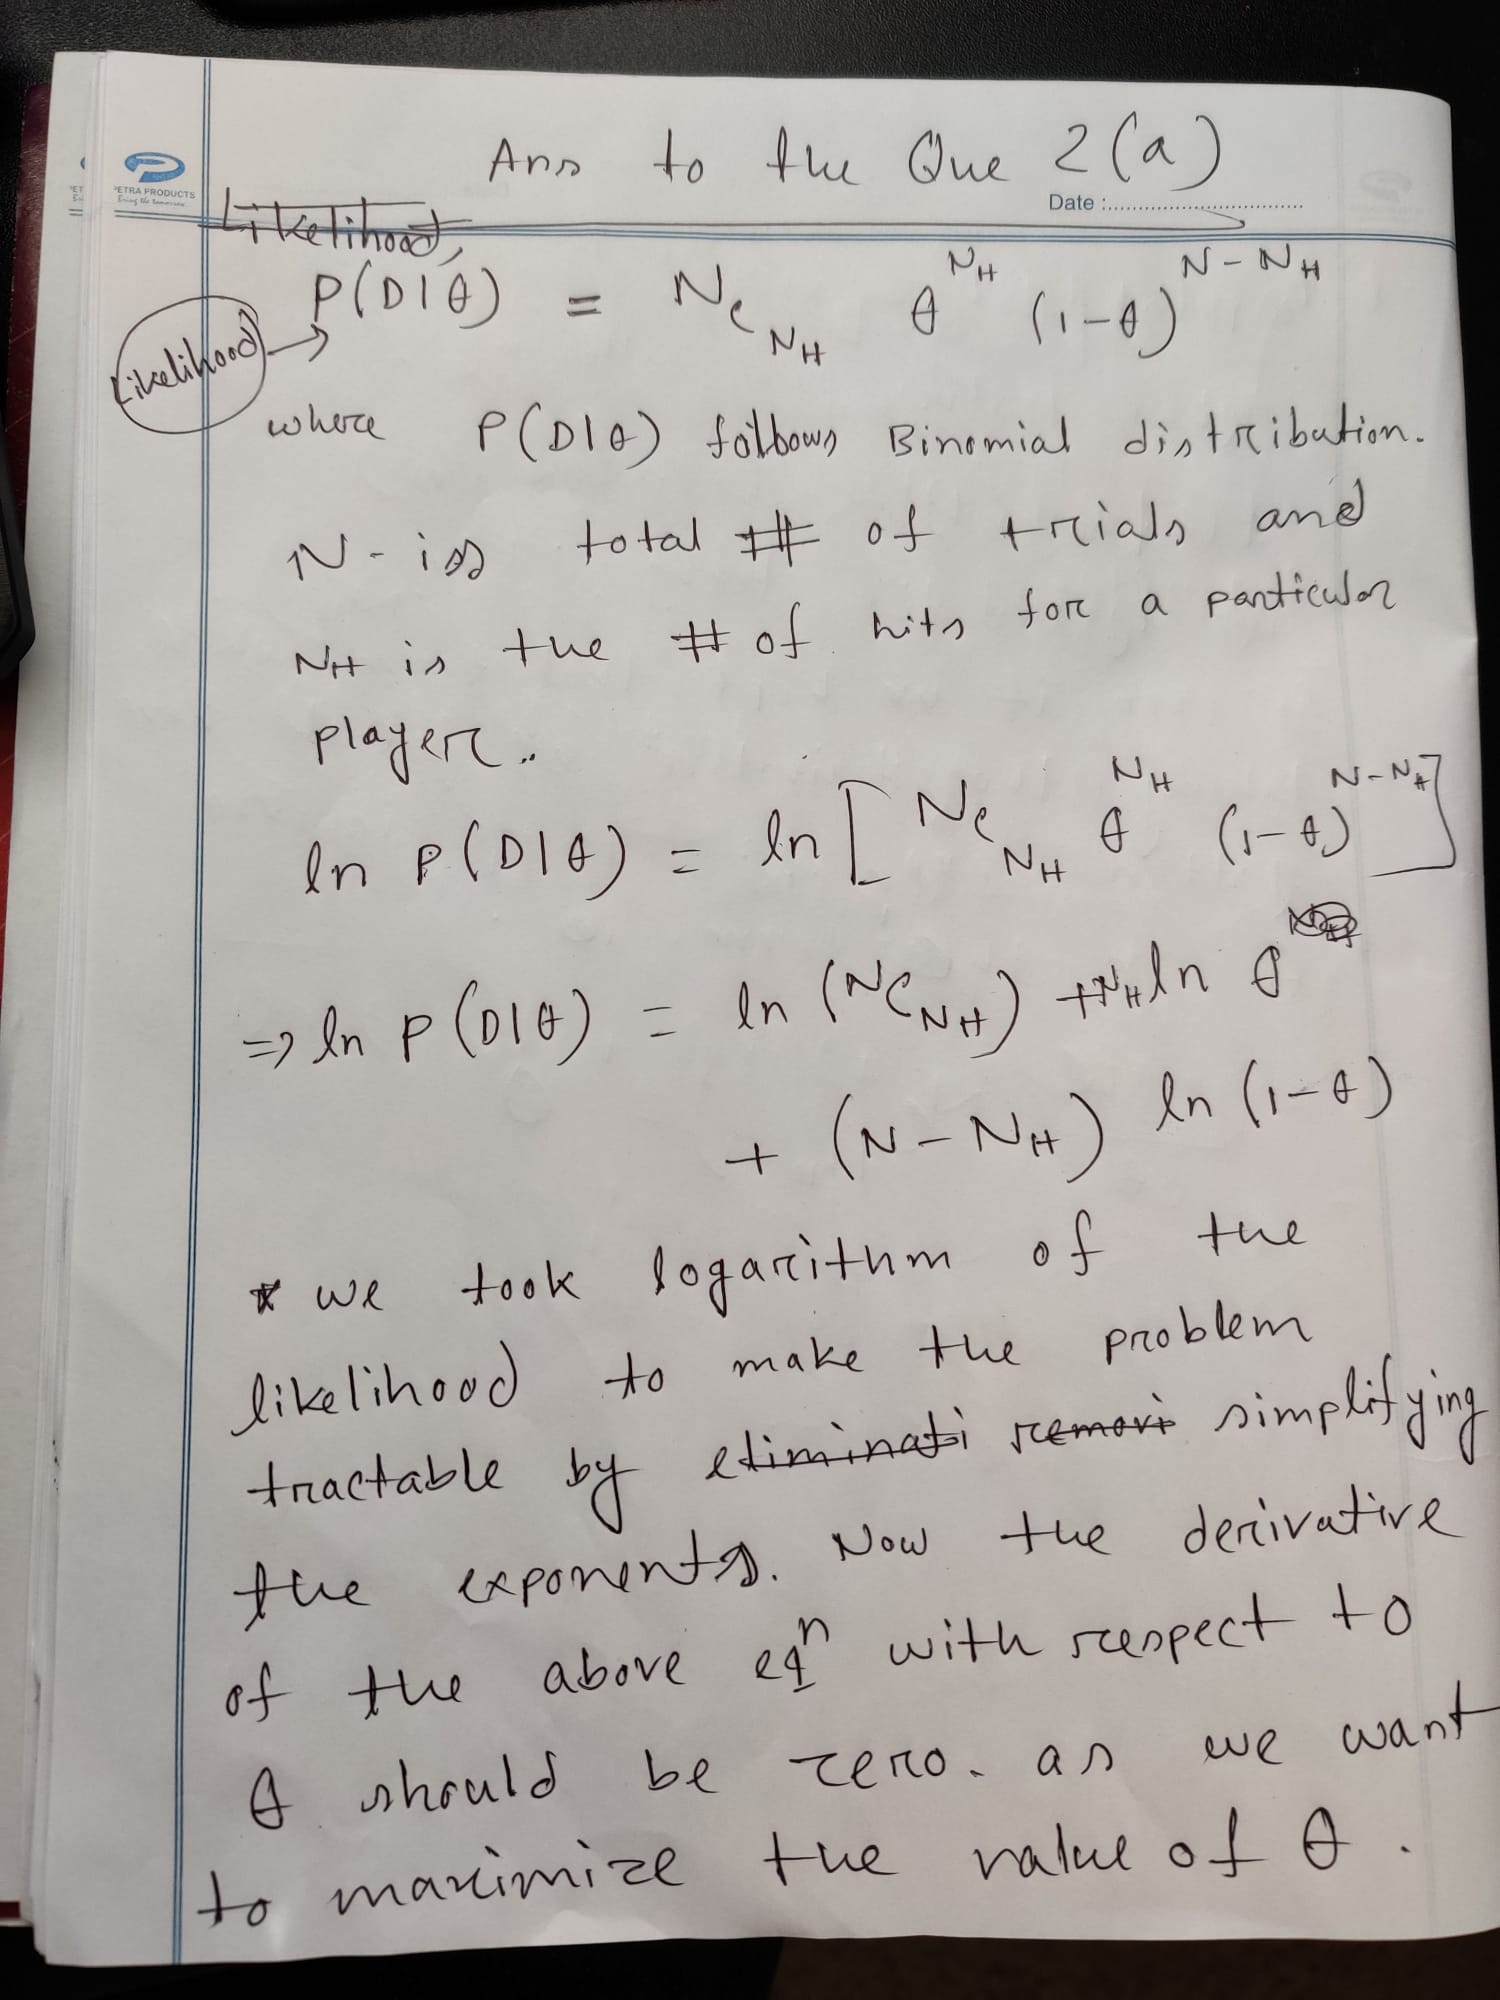 Ans to the Que 2(a)
PETRA PRODUCTS
Bring the tomorrow
Date :
Likelihood,
Likelihood → P(D|θ) = N_C_{N_H} θ^{N_H} (1-θ)^{N-N_H}
where P(D|θ) follows Binomial distribution.
N - is total # of trials and
N_H is the # of hits for a particular
player..
ln P(D|θ) = ln [ N_C_{N_H} θ^{N_H} (1-θ)^{N-N_H} ]
⇒ ln P(D|θ) = ln (^NC_{N_H}) + N_H ln θ
+ (N - N_H) ln (1-θ)
* we took logarithm of the
likelihood to make the problem
tractable by eliminati removi simplifying
the exponents. Now the derivative
of the above eq^n with respect to
θ should be zero. as we want
to maximize the value of θ.